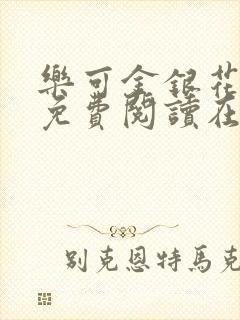 樂可金銀花
免費閱讀在
別克恩特馬克